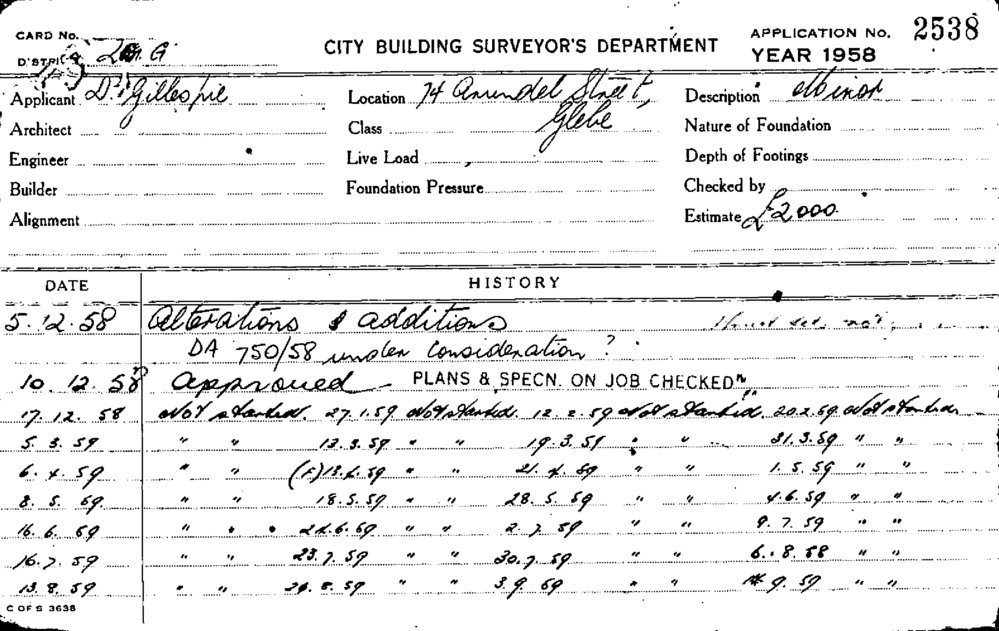 CARD No.
DISTRICT G.
CITY BUILDING SURVEYOR'S DEPARTMENT
APPLICATION No. 2538
YEAR 1958
Applicant D. Gillespie
Location 74 Arundel Street, Glebe
Description Minor
Architect
Class
Nature of Foundation
Engineer
Live Load
Depth of Footings
Builder
Foundation Pressure
Checked by
Alignment
Estimate £2000.
DATE HISTORY
5.12.58 Alterations & additions
DA 750/58 under consideration ?
10.12.58 Approved PLANS & SPECN. ON JOB CHECKED"
17.12.58 Not started. 27.1.59 Not started. 12.2.59 Not started. 20.2.59 Not started.
5.3.59 " " 12.3.59 " " 19.3.59 " " 31.3.59 " "
6.4.59 " " 13.4.59 " " 21.4.59 " " 1.5.59 " "
8.5.59 " " 18.5.59 " " 28.5.59 " " 4.6.59 " "
16.6.59 " " 24.6.59 " " 2.7.59 " " 9.7.59 " "
16.7.59 " " 23.7.59 " " 30.7.59 " " 6.8.58 " "
13.8.59 " " 24.8.59 " " 3.9.59 " " 9.59 " "
C OF S 3638